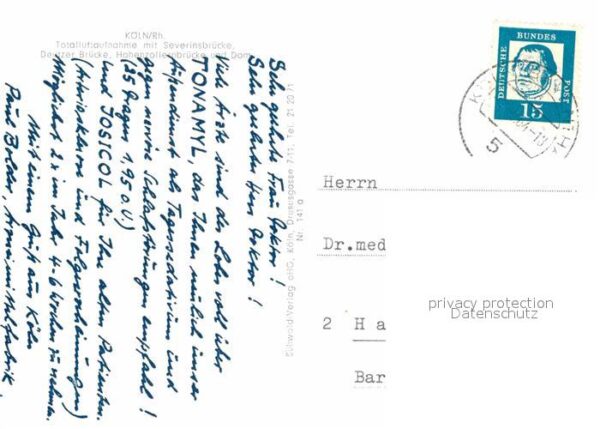 KÖLN/Rh.
Totalluftaufnahme mit Severinsbrücke,
Deutzer Brücke, Hohenzollernbrücke und Dom
Sehr geehrte Frau Doktor!
Sehr geehrter Herr Doktor!
Viele Ärzte sind des Lobes voll über
TONAMYL, das Ihnen neulich unser
Außendienst als Tagessedativum und
gegen nervöse Schlafstörungen empfahl!
(35 Dragees 1,95 O.U.)
und JOSICOL für Ihre alten Patienten.
(Arteriosklerose und Folgeerscheinungen)
Möglichst 2x im Jahr 4-6 Wochen zu nehmen.
Mit einem Gruß aus Köln
Paul Arzneimittelfabrik.
Stühwald-Verlag oHG, Köln, Drususgasse 7-11, Tel. 21 20 71
Nr. 141 a
DEUTSCHE
BUNDES
POST
15
5
Herrn
Dr.med
2 Ha
Bar
privacy protection
Datenschutz